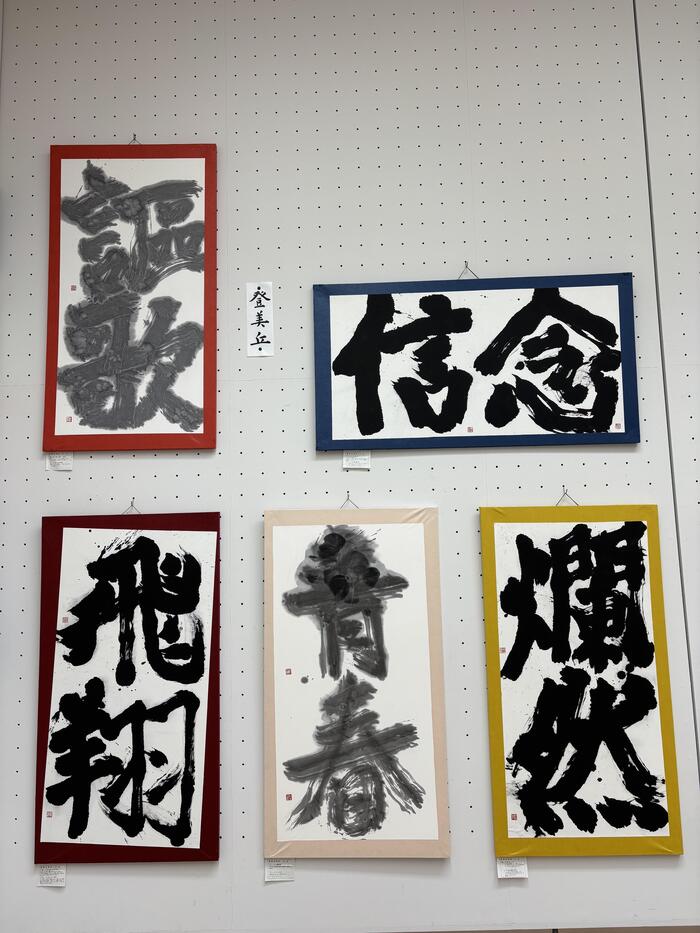 謳歌
登美丘
信念
飛翔
青春
爛然